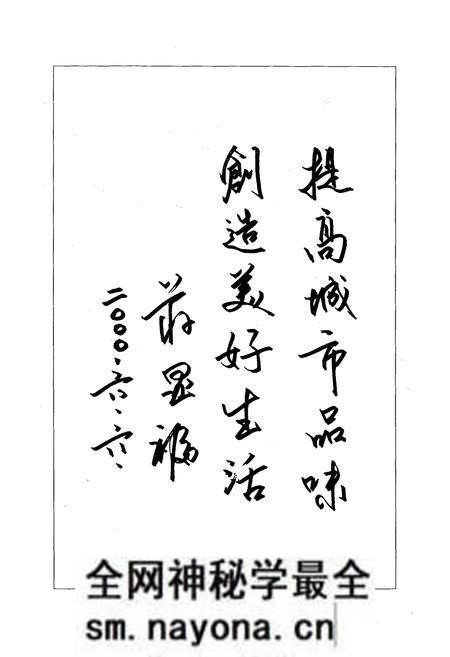 提高城市品味
創造美好生活
蔣显福
二〇〇〇·六·六·
全网神秘学最全
sm.nayona.cn